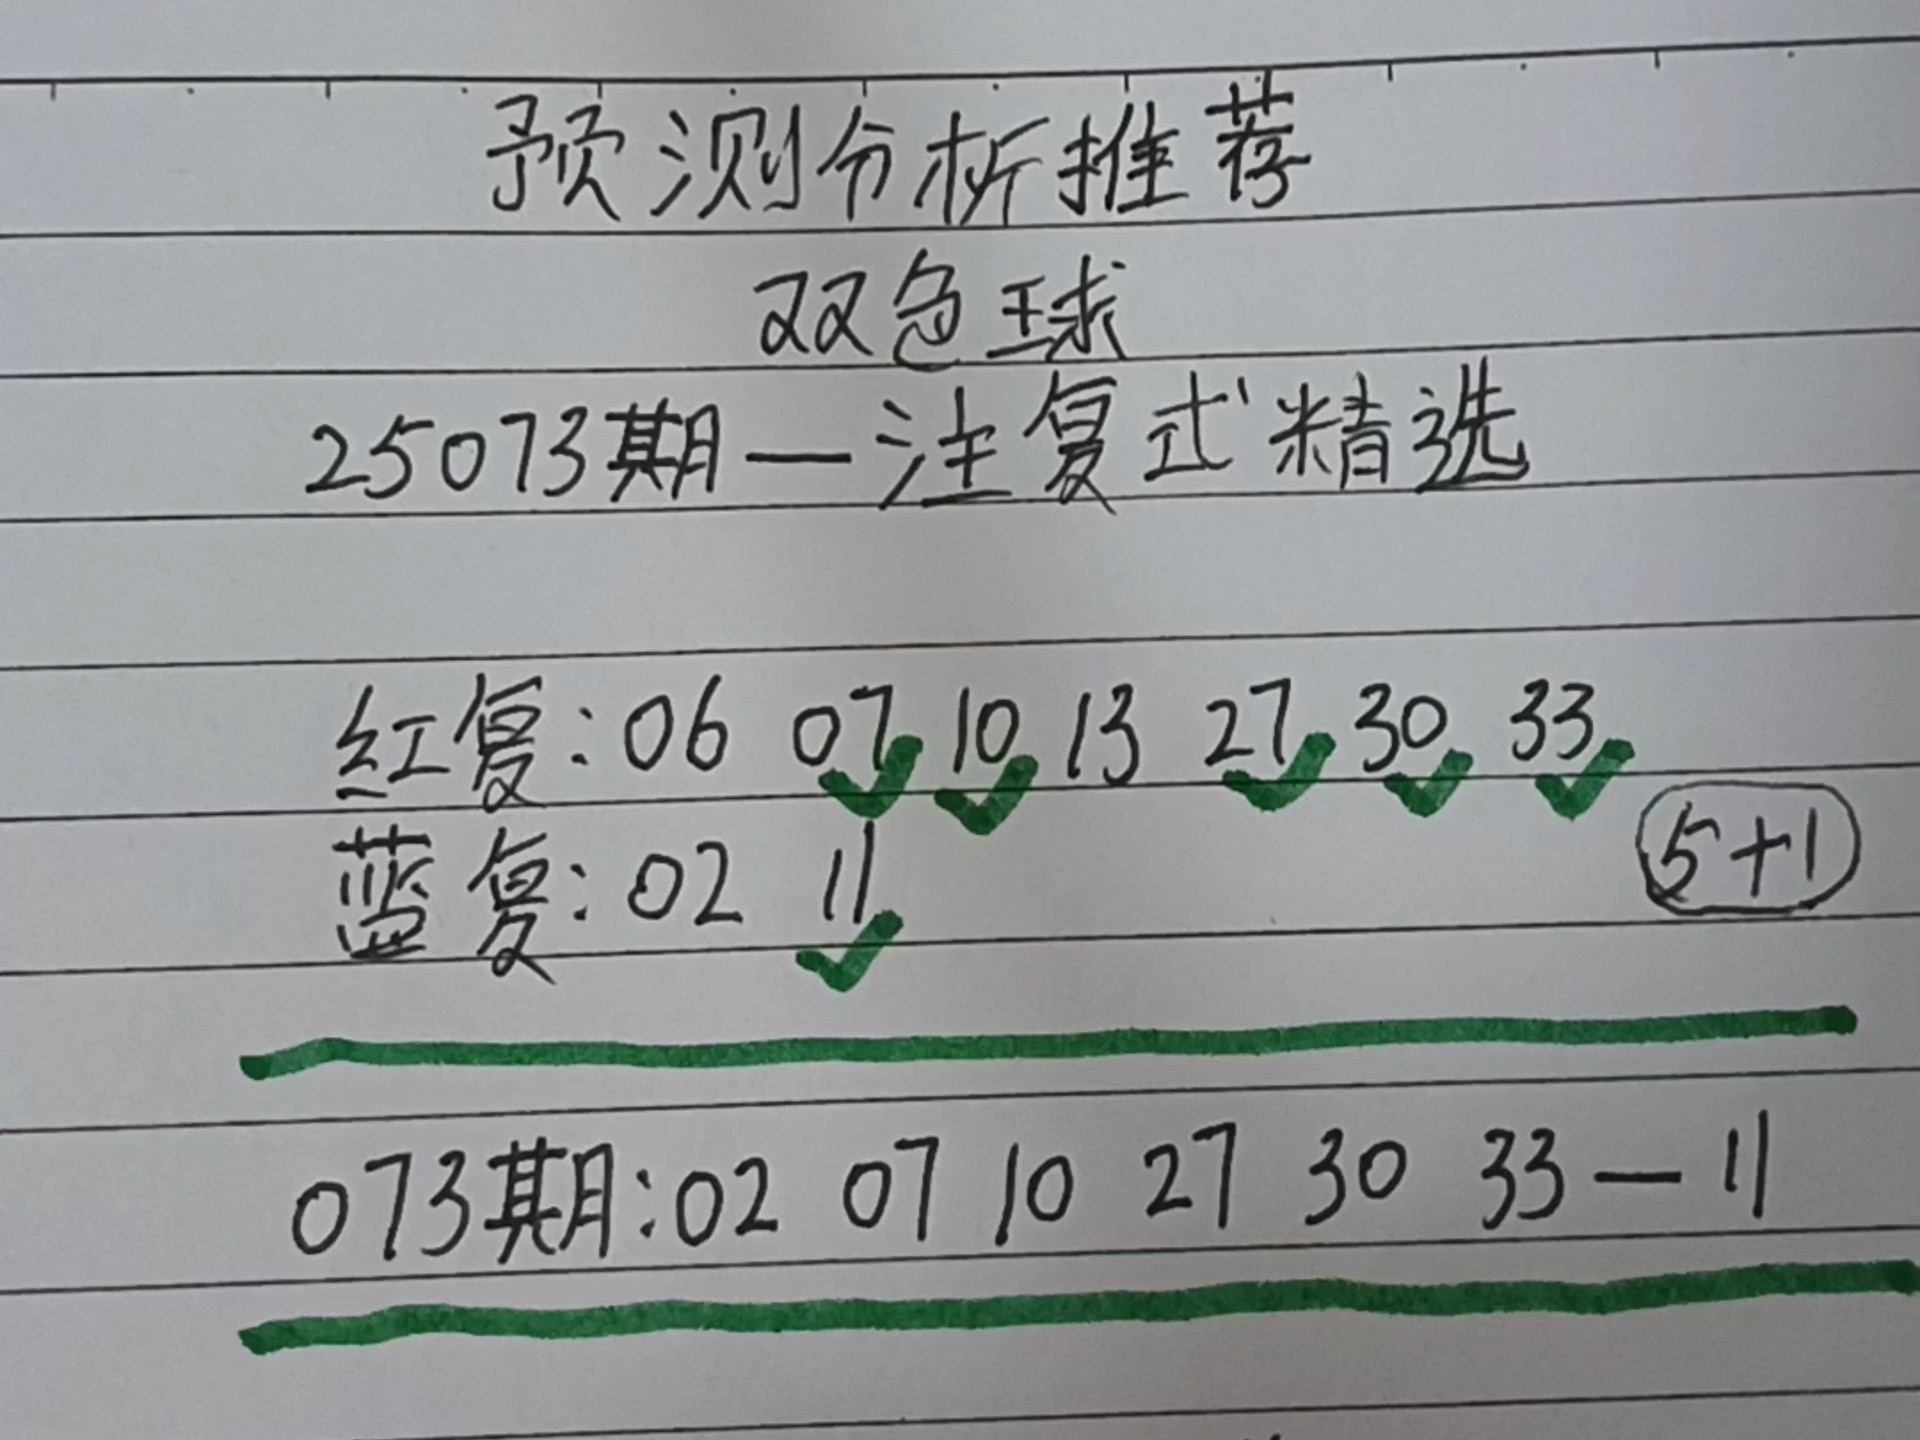 预测分析推荐
双色球
25073期一注复式精选
红复:06 07 10 13 27 30 33
蓝复:02 11
5+1
073期:02 07 10 27 30 33—11